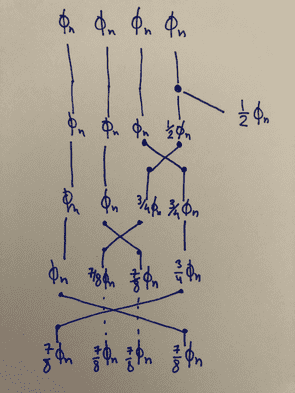 ϕₙ ϕₙ ϕₙ ϕₙ
½ ϕₙ
ϕₙ ϕₙ ϕₙ ½ ϕₙ
ϕₙ ϕₙ ¾ ϕₙ ¾ ϕₙ
ϕₙ 7/8 ϕₙ 7/8 ϕₙ ¾ ϕₙ
7/8 ϕₙ 7/8 ϕₙ 7/8 ϕₙ 7/8 ϕₙ